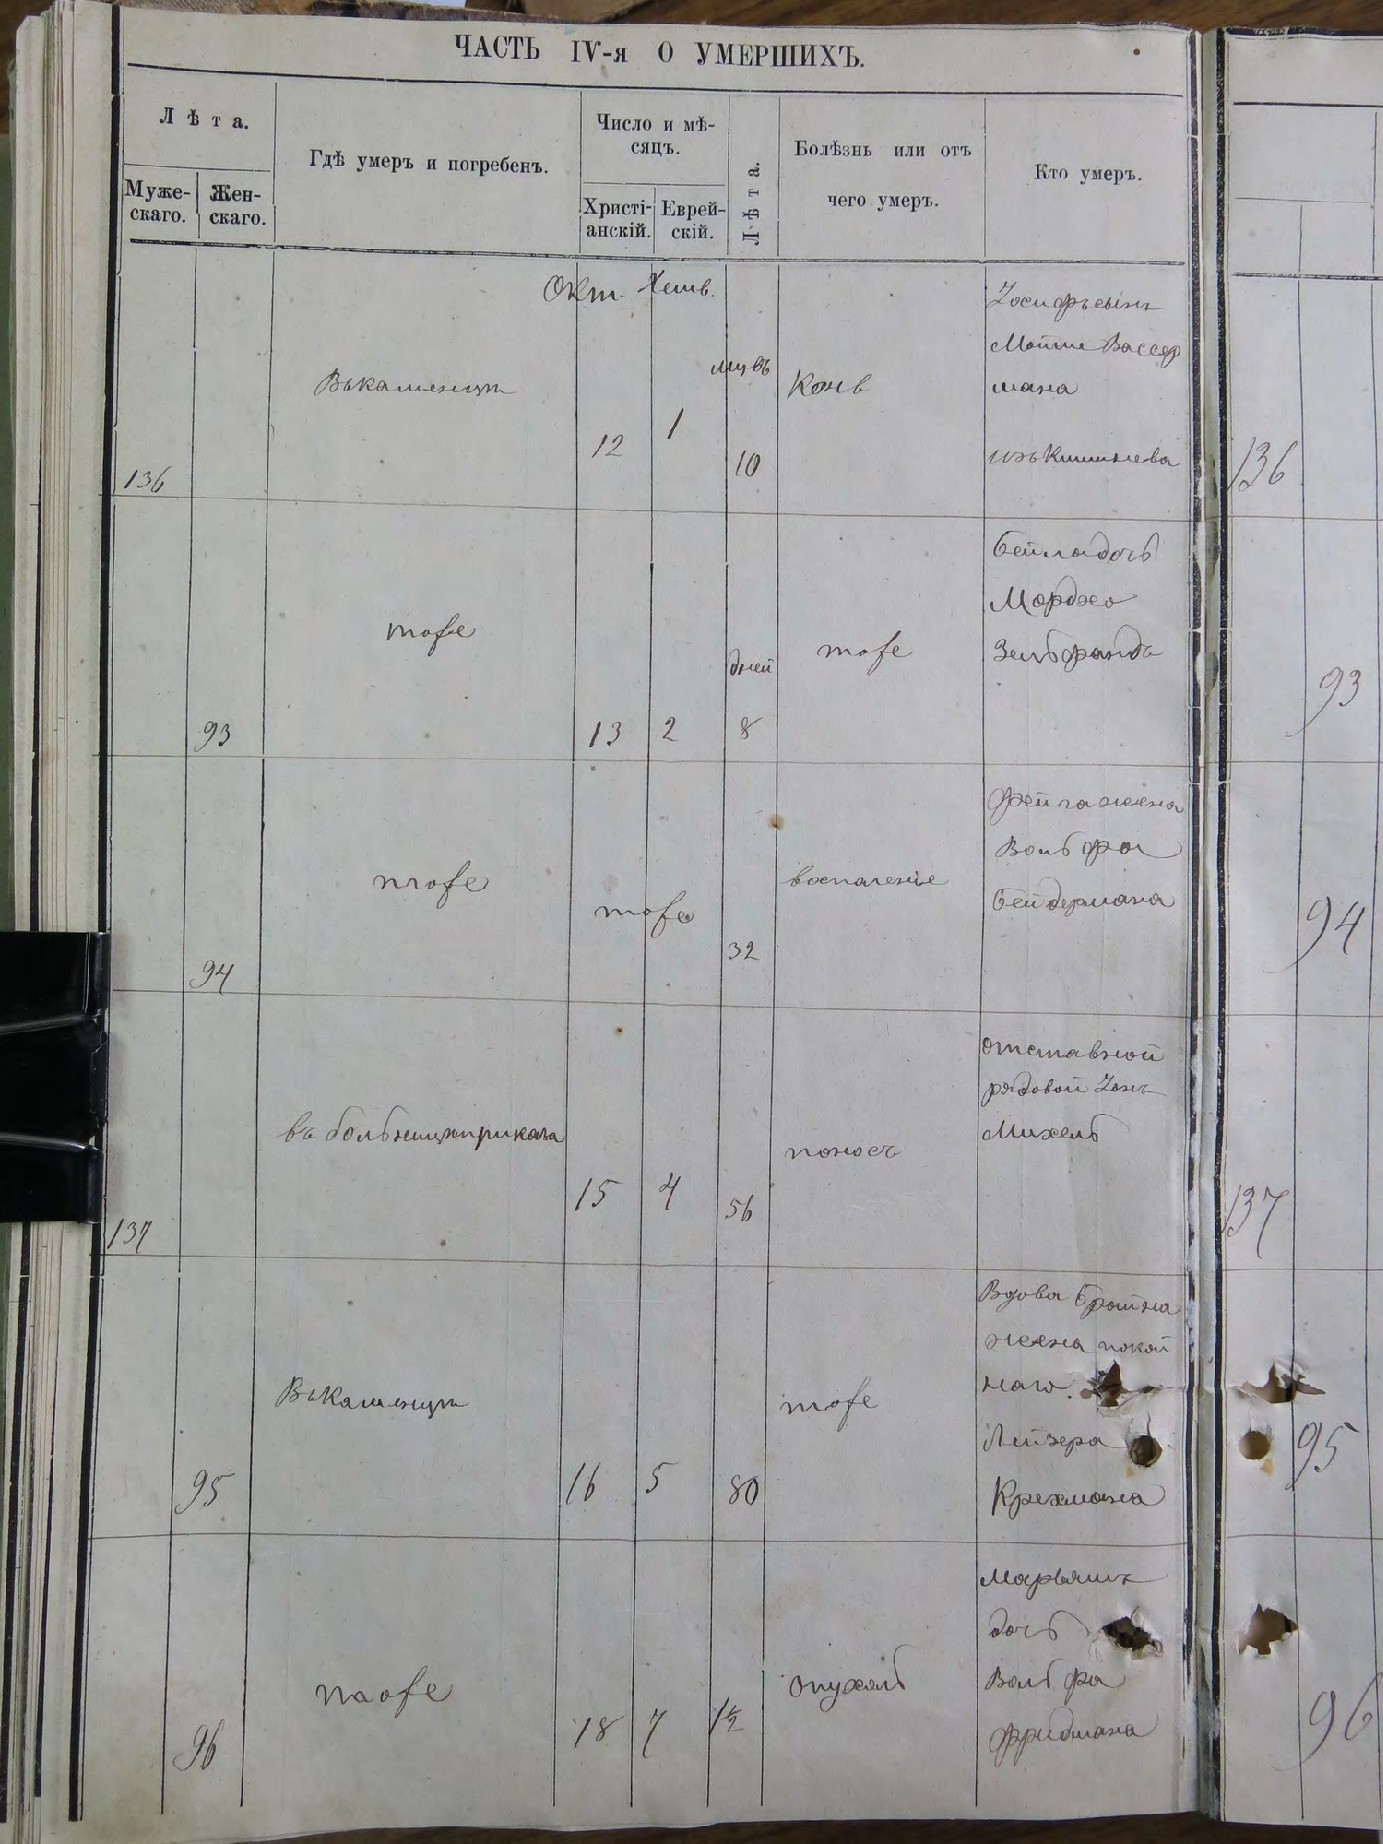 ЧАСТЬ IV-я О УМЕРШИХЪ.
Лѣта.
Муже-
скаго.
Жен-
скаго.
Гдѣ умеръ и погребенъ.
Число и мѣ-
сяцъ.
Христі-
анскій.
Еврей-
скій.
Лѣта.
Болѣзнь или отъ
чего умеръ.
Кто умеръ.
Окт. Хешв.
136
Въ каменцѣ
12
1
10
Іосифъ сынъ
Мойше Вассер
мана
изъ Кишинева
136
93
тоже
13
2
дней
8
тоже
Бейла дочь
Мордко
Зельбранда
93
94
тоже
тоже
32
воспаленіе
Фейга жена
Вольфа
Бейдермана
94
137
въ больницѣ приказа
15
4
56
поносъ
отставной
рядовой Іонъ
Михель
137
95
Въ Каменцѣ
16
5
80
тоже
Вдова Брайна
жена покой
наго
Лейзера
Крехмана
95
96
тоже
18
7
1½
опухоль
Марьямъ
дочь
Вольфа
Фридмана
96